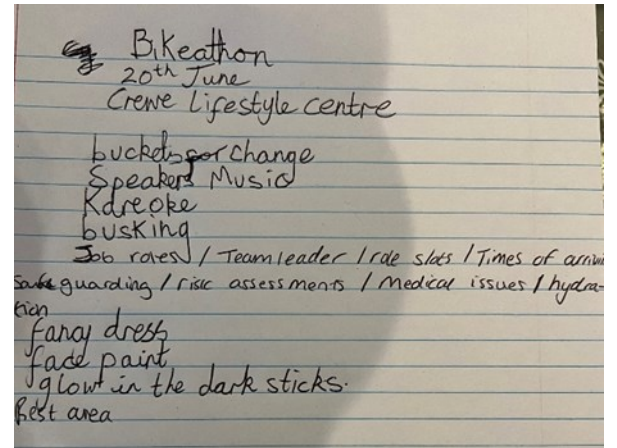 Bikeathon
20th June
Crewe Lifestyle centre
buckets for change
Speakers Music
Kareoke
busking
Job roles / Team leader / role slots / Times of
safeguarding / risk assessments / Medical issues / hydra-
tion
fancy dress
face paint
glow in the dark sticks.
Rest area